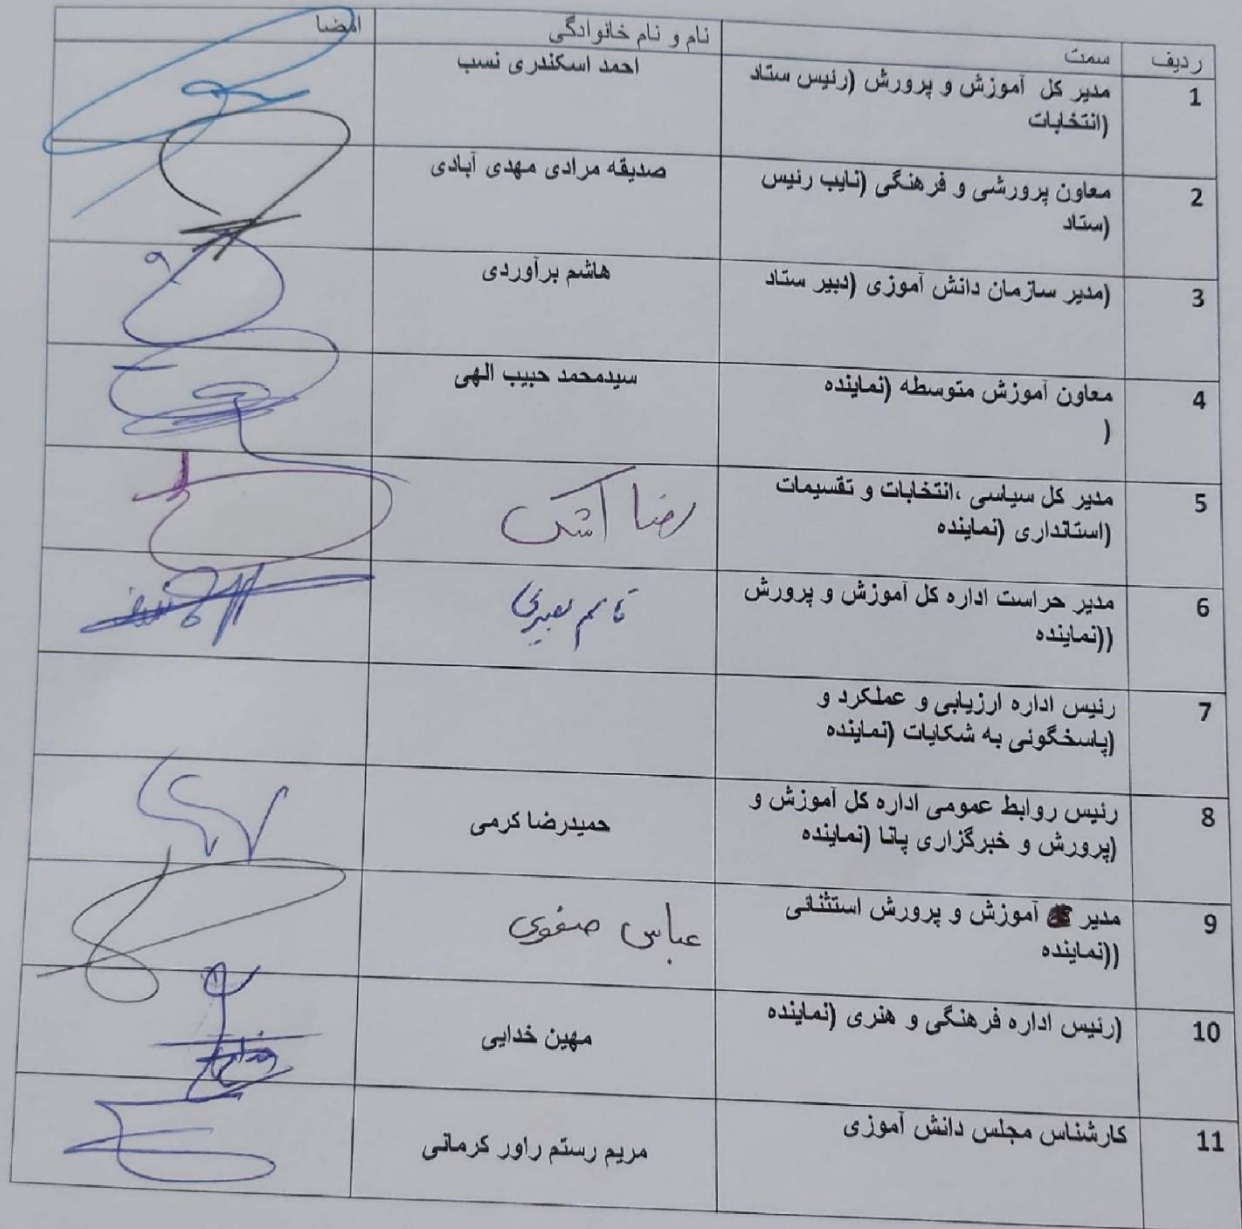 ردیف سمت نام و نام خانوادگی امضا
1 مدیر کل آموزش و پرورش (رئیس ستاد احمد اسکندری نسب
(انتخابات
2 معاون پرورشی و فرهنگی (نایب رئیس صدیقه مرادی مهدی آبادی
(ستاد
3 (مدیر سازمان دانش آموزی (دبیر ستاد هاشم برآوردی
4 معاون آموزش متوسطه (نماینده سیدمحمد حبیب الهی
(
5 مدیر کل سیاسی ،انتخابات و تقسیمات رضا اشک
(استانداری (نماینده
6 مدیر حراست اداره کل آموزش و پرورش قاسم
((نماینده
7 رئیس اداره ارزیابی و عملکرد و
(پاسخگوئی به شکایات (نماینده
8 رئیس روابط عمومی اداره کل آموزش و حمیدرضا کرمی
(پرورش و خبرگزاری پانا (نماینده
9 مدیر آموزش و پرورش استثنائی عباس صفوی
((نماینده
10 (رئیس اداره فرهنگی و هنری (نماینده مهین خدایی
11 کارشناس مجلس دانش آموزی مریم رستم راور کرمانی